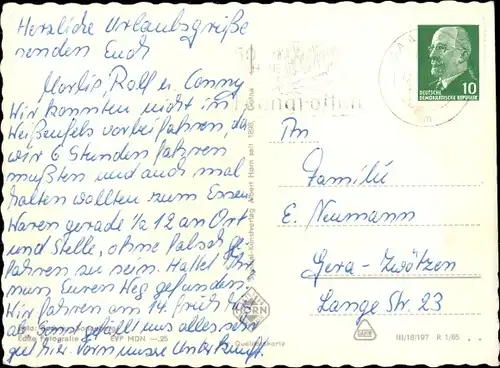 Herzliche Urlaubsgrüße
senden Euch
Marlis, Rolf u. Conny
Wir konnten nicht in
Weißenfels vorbeifahren, da
wir 6 Stunden fahren
mußten und auch mal
halten wollten zum Essen
Waren gerade ½ 12 an Ort
und Stelle, ohne falsch ge-
fahren zu sein. Hattet Ihr
nun Euren Weg gefunden
Wir fahren am 14. früh
ab sonst gefällt uns alles sehr
gut hier. Vorn unsere Unterkunft.
DEUTSCHE
DEMOKRATISCHE REPUBLIK
10
An
Familie
E. Neumann
Gera-Zwötzen
Lange Str. 23
Albert Horn seit 1886
HORN
Echte Fotografie
EVP MDN -.25
Qualitätskarte
III/18/197 R 1/65